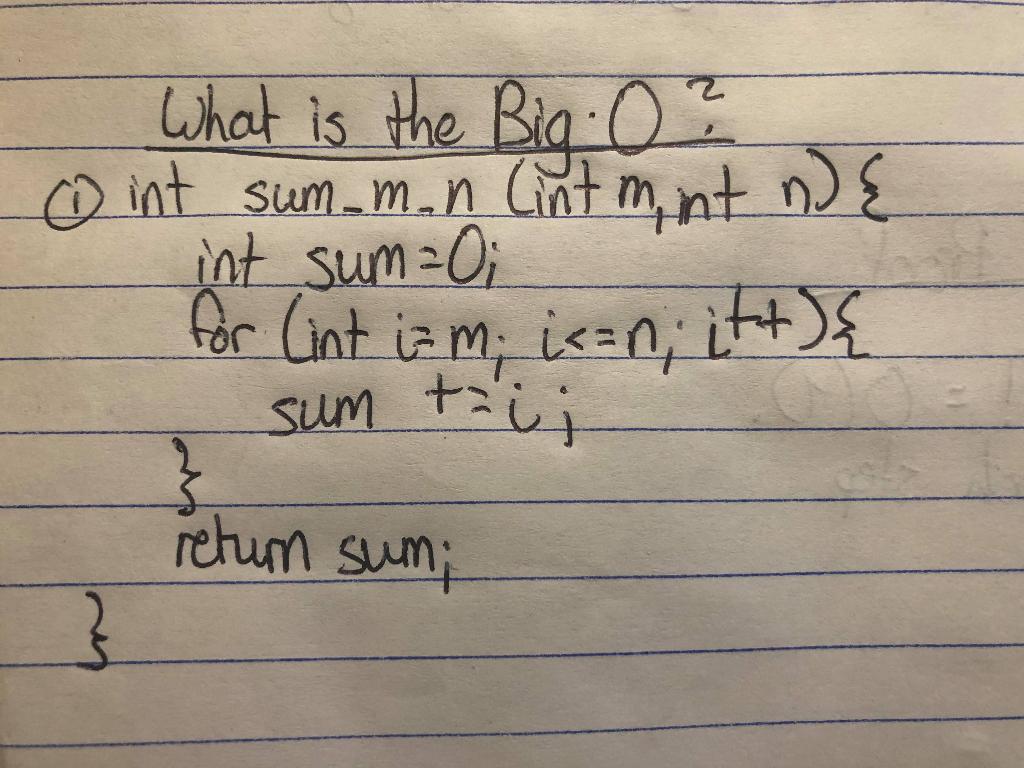 What is the Big-O?
① int sum_m_n (int m, int n) {
int sum=0;
for (int i=m; i<=n; i++) {
sum += i;
}
return sum;
}